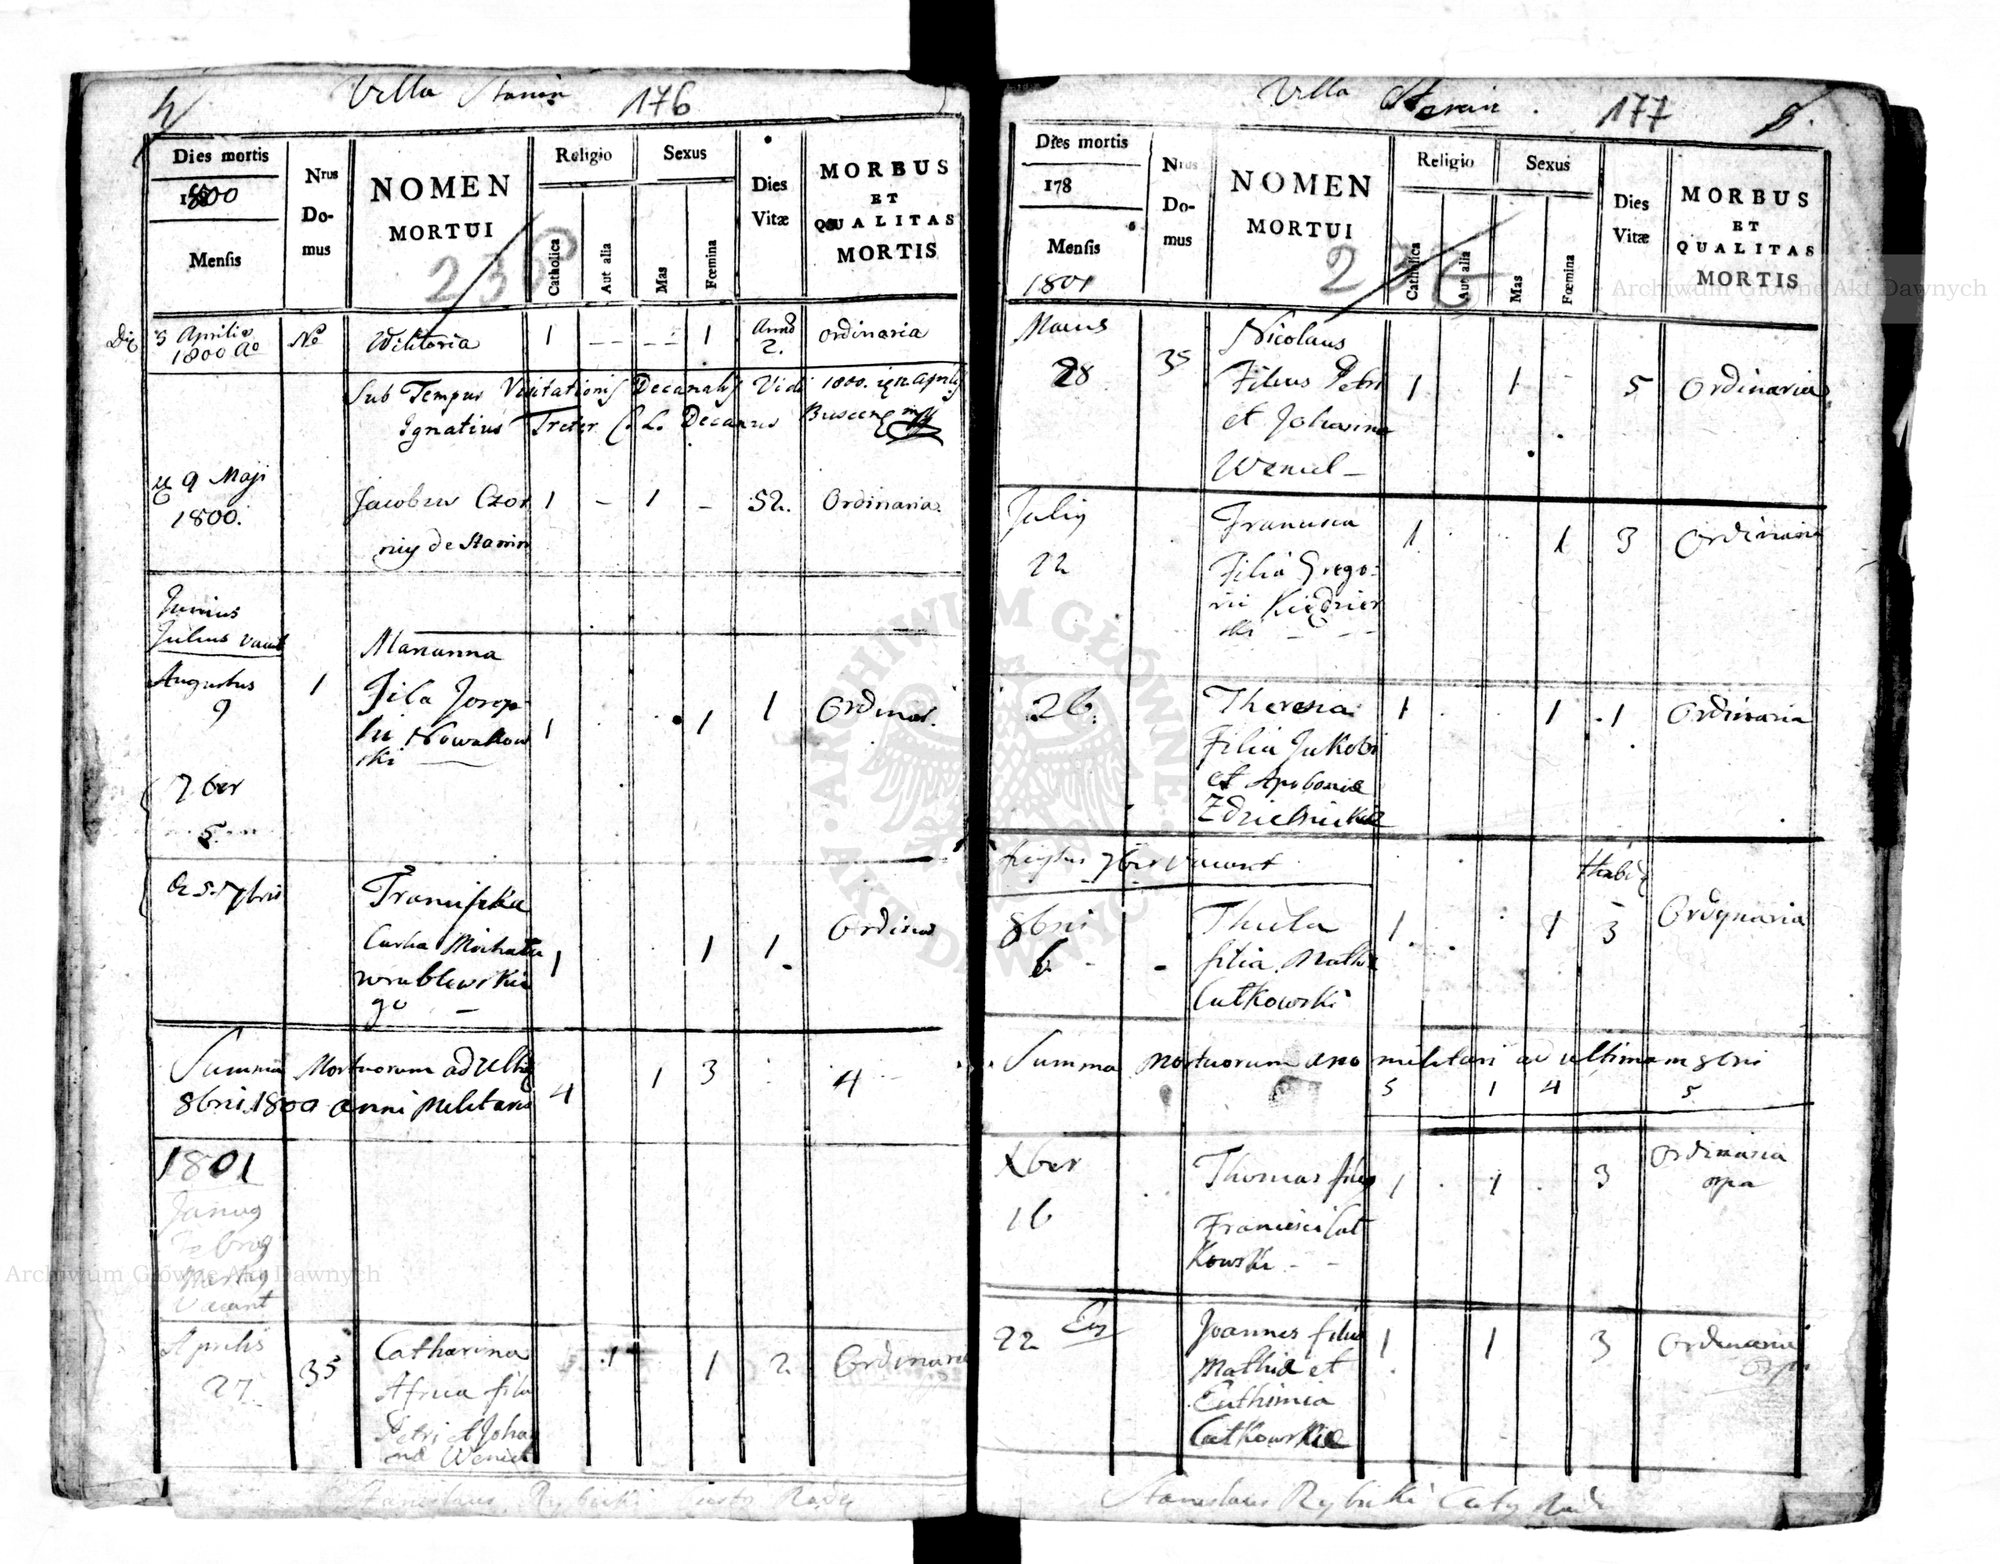 4
Villa Stanin
176
Dies mortis
1800
Mensis
Nrus
Do-
mus
NOMEN
MORTUI
235
Religio
Catholica
Aut alia
Sexus
Mas
Fœmina
Dies
Vitæ
MORBUS
ET
QUALITAS
MORTIS
3 Aprilis No Wiktoria 1 - - - - 1 Anno ordinaria
1800 Ao 2.
Sub Tempus Visitationis Decanalis Vidi 1800. Aprilis
Ignatius Treter Decanus
9 Maji
1800.
Jacobus Czor 1 - 1 - 52. Ordinaria
niy de Stanin
Junius
Julius vacat
Augustus 1
9
Marianna
Fila Josep
hi Nowakow 1 1 1 Ordinar.
ski
7ber
5
5 7bris
Franciszka
Curka Michała 1 1 1 Ordinar
wrublewskie
go
Summa Mortuorum ad
8bris 1800 anni Militaris 4 1 3 4
1801
Janus
Febru
Martius
vacant
Aprilis
27. 35
Catharina 1 1 2 Ordinaria
Africa filia
Petri et Joha
na Weniel
Stanislaus Rybicki
Villa Stanin
177
5.
Dies mortis
178
Mensis
1801
Nrus
Do-
mus
NOMEN
MORTUI
236
Religio
Catholica
Aut alia
Sexus
Mas
Fœmina
Dies
Vitæ
MORBUS
ET
QUALITAS
MORTIS
Maius
28 35
Nicolaus
Filius Petri 1 1 5 Ordinaria
et Johanna
Weniel
July
22
Francisca 1 1 3 Ordinaria
Filia Grego-
rii Kiedzier
ski
26. Theresia 1 1 1 Ordinaria
Filia Jakobi
et Apolonia
7ber vacant
8bris
6
Thecla 1 1 3 Ordynaria
filia Mathia
Cutkowski
Summa Mortuorum ano militari ad ultimam 8bris
5 1 4 5
Xber
16
Thomas filius 1 1 3 Ordinaria
Francisci Cut
kowski
22 Joannes filius 1 1 3 Ordinaria
Mathia et
Euthimia
Cutkowskie
Stanislaus Rybicki
ARCHIWUM GŁÓWNE
AKT DAWNYCH
Archiwum Główne Akt Dawnych
Archiwum Główne Akt Dawnych